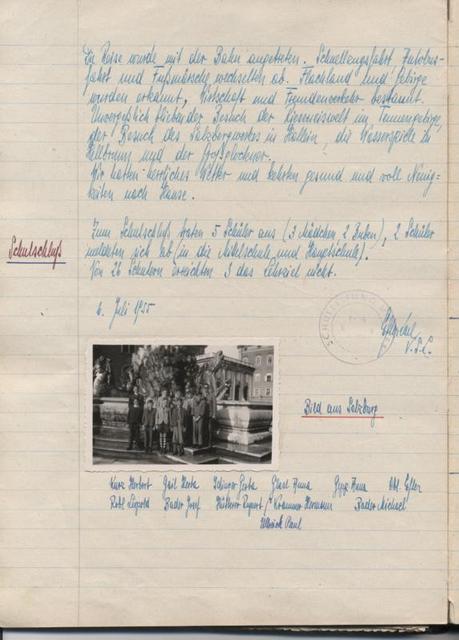 Die Reise wurde mit der Bahn angetreten. Autobus-
fahrt und Fußmärsche wechselten ab. Flachland und Gebirge
wurden erkannt, Wirtschaft und Fremdenverkehr bestaunt.
Unvergeßlich der Besuch der Eisriesenwelt im Tennengebirge,
der Besuch des Salzbergwerkes in Hallein, die Wasserspiele in
Hellbrunn und der Großglockner.
Wir hatten herrliches Wetter und kehrten gesund und voll Neuig-
keiten nach Hause.
Schulschluß
Zum Schulschluß traten 5 Schüler aus (3 Mädchen 2 Buben), 2 Schüler
meldeten sich ab (in die Mittelschule und Hauptschule).
Von 26 Schülern erreichten 3 das Lehrziel nicht.
6. Juli 1955
Bild aus Salzburg
Herbert Gail Herta Gerta Anna Hans
Leopold Bader Josef Rupert, Krammer Hermann Bader Michael
Paul